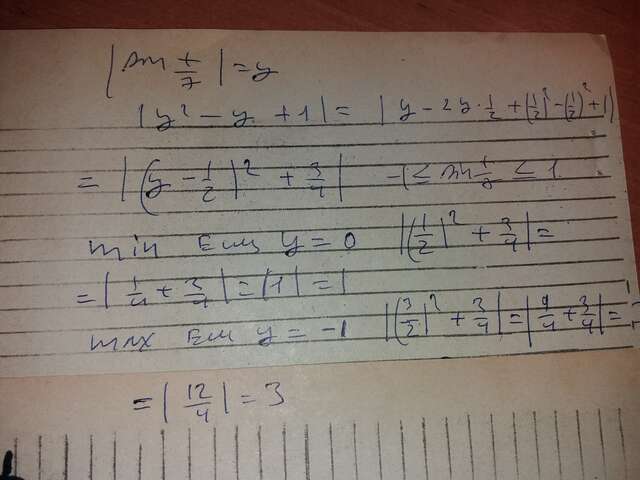 |y² - y + 1| = |y - 2y · 1/2 + (1/2)² - (1/2)² + 1|
= |(y - 1/2)² + 3/4|
min y = 0 |(1/2)² + 3/4| =
= |1/4 + 3/4| = |1| = 1
max y = -1 |(3/2)² + 3/4| = |9/4 + 3/4| =
= |12/4| = 3